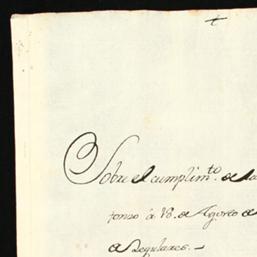 Sobre el cumplim.to de la
fonso á 18. de Agosto d
de Regulares.